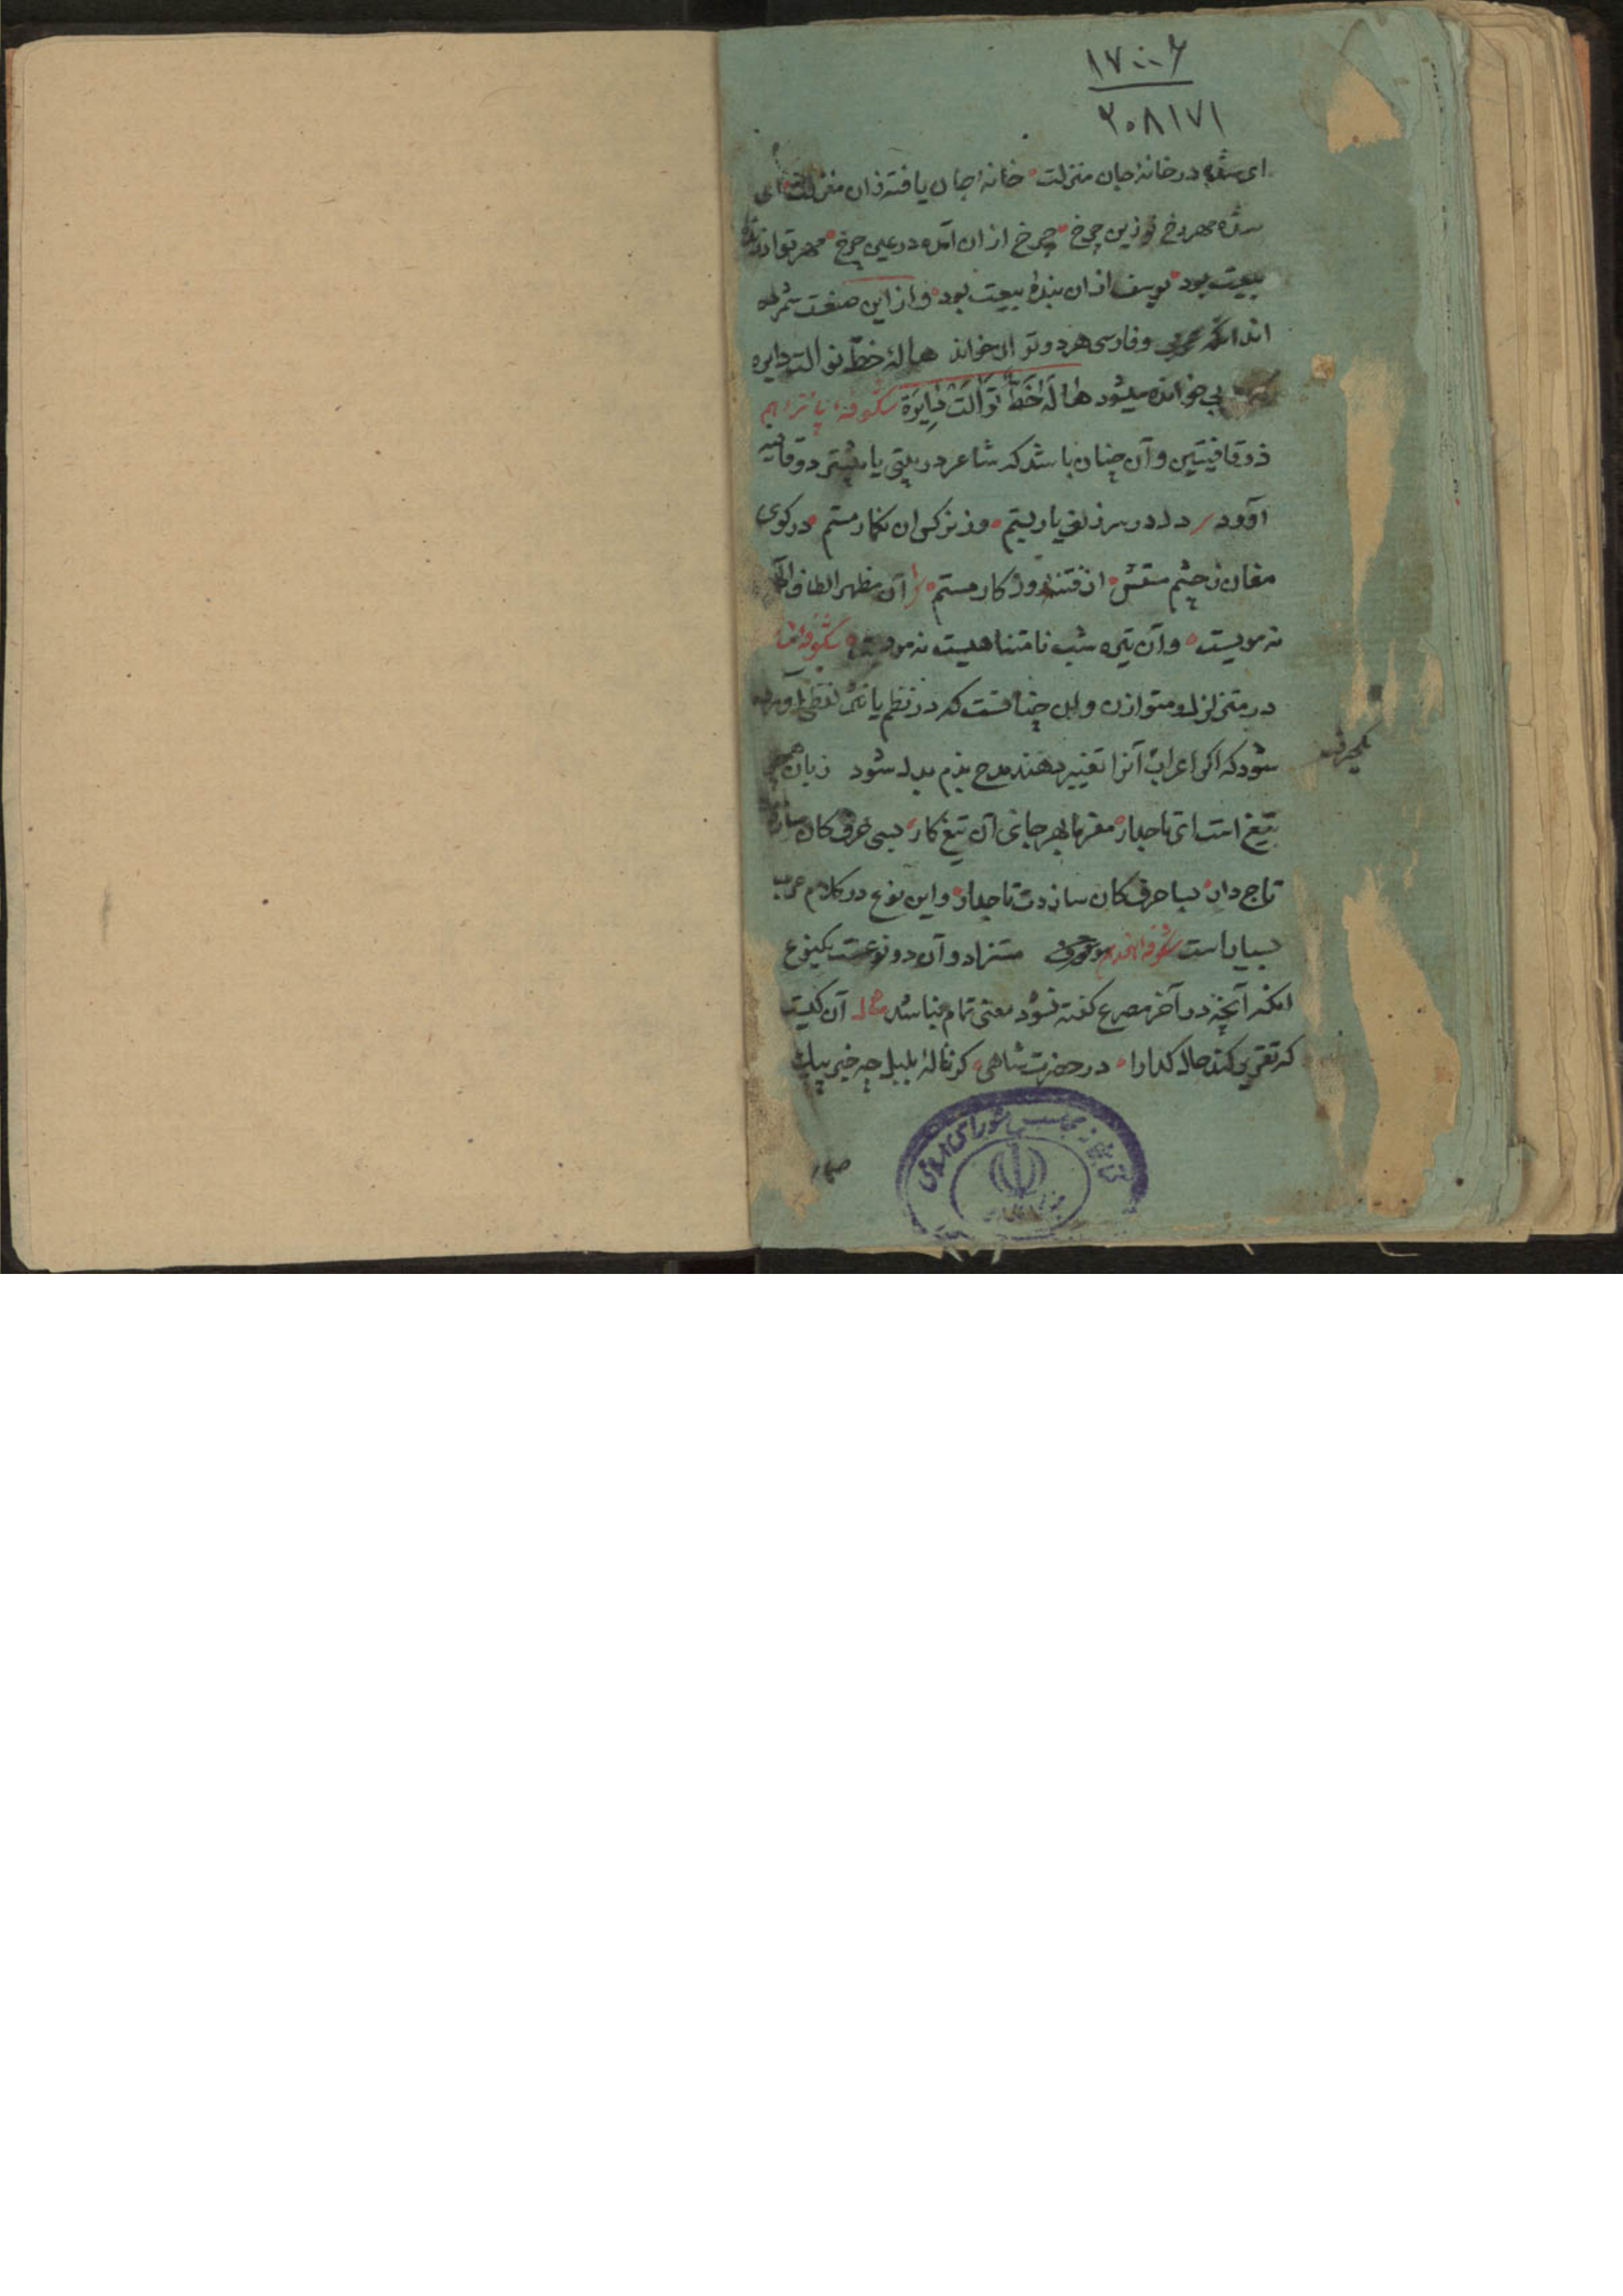 ۱۷۰۰۶
۲۰۸۱۷۱
ای شده در خانهٔ جان منزلت خانهٔ جان یافته زان منزلت ای
شده مهر رخ تو زین چرخ چرخ از ان آمده در عین چرخ مهر تو ار
بیعت بود یوسف از ان بندهٔ بیعت بود و از این صنعت شمرده
اند انکه عربی و فارسی هر دو توان خواند هالهٔ خط تو الت دایره
بی خوانده میشود هَالَهُ خَطَّ تَوَالَت دَایِرَة شکوفهٔ پانزدهم
ذو قافیتین و آن چنان باشد که شاعر در بیتی یا بیشتر دو قافیه
آورد دل در سر زلف یار بستم وز نرکس ان نکار مستم در کوی
مغان ز چشم مستش از فتنهٔ روزکار مستم آن مظهر الطاف
نه مویست و آن تیره شب نا متناهیست نه مو شکوفهٔ
در متزلزل و متوازن و این چنانست که در نظم یا نثر لفظی آورده
شود که اکر اعراب آنرا تغییر دهند مدح بذم بدل شود زبان
تیغ است ای تاجدار مفرما بهر جانی آن تیغ کار بسی حرف کان سازدت
تاج دار بسا حرف کان سازدت تاجدار و این نوع در کلام عرب
بسیار است شکوفهٔ هفدهم مستزاد و آن دو نوعست یکنوع
انکه آنچه در آخر مصرع کفته شود معنی تمام نباشد مثال آن کیست
که تقریر کند حال کدا را در حضرت شاهی کز نالهٔ بلبل چه خبر
کتابخانه مجلس شورای اسلامی